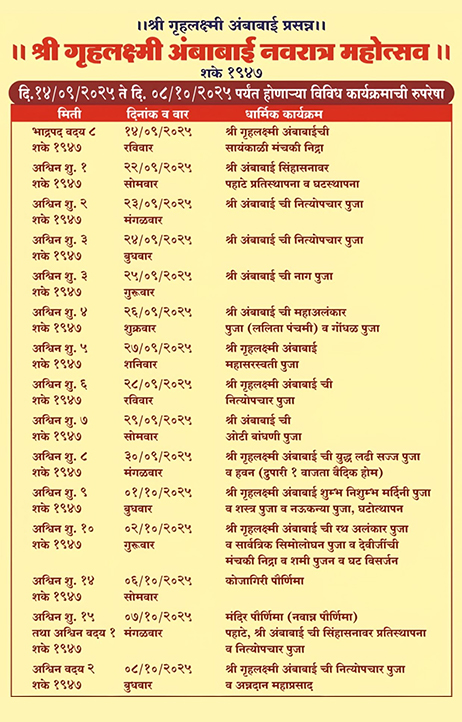 ।।श्री गृहलक्ष्मी अंबाबाई प्रसन्न।।
।। श्री गृहलक्ष्मी अंबाबाई नवरात्र महोत्सव ।।
शके १९४७
दि.१४/०९/२०२५ ते दि. ०८/१०/२०२५ पर्यंत होणाऱ्या विविध कार्यक्रमाची रुपरेषा
मिती दिनांक व वार धार्मिक कार्यक्रम
भाद्रपद वदय ८ १४/०९/२०२५ श्री गृहलक्ष्मी अंबाबाईची
शके १९४७ रविवार सायंकाळी मंचकी निद्रा
अश्विन शु. १ २२/०९/२०२५ श्री अंबाबाई सिंहासनावर
शके १९४७ सोमवार पहाटे प्रतिस्थापना व घटस्थापना
अश्विन शु. २ २३/०९/२०२५ श्री अंबाबाई ची नित्योपचार पुजा
शके १९४७ मंगळवार
अश्विन शु. ३ २४/०९/२०२५ श्री अंबाबाई ची नित्योपचार पुजा
शके १९४७ बुधवार
अश्विन शु. ३ २५/०९/२०२५ श्री अंबाबाई ची नाग पुजा
शके १९४७ गुरूवार
अश्विन शु. ४ २६/०९/२०२५ श्री अंबाबाई ची महाअलंकार
शके १९४७ शुक्रवार पुजा (ललिता पंचमी) व गोंधळ पुजा
अश्विन शु. ५ २७/०९/२०२५ श्री गृहलक्ष्मी अंबाबाई
शके १९४७ शनिवार महासरस्वती पुजा
अश्विन शु. ६ २८/०९/२०२५ श्री गृहलक्ष्मी अंबाबाई ची
शके १९४७ रविवार नित्योपचार पुजा
अश्विन शु. ७ २९/०९/२०२५ श्री अंबाबाई ची
शके १९४७ सोमवार ओटी बांधणी पुजा
अश्विन शु. ८ ३०/०९/२०२५ श्री गृहलक्ष्मी अंबाबाई ची युद्ध लढी सज्ज पुजा
शके १९४७ मंगळवार व हवन (दुपारी १ वाजता वैदिक होम)
अश्विन शु. ९ ०१/१०/२०२५ श्री गृहलक्ष्मी अंबाबाई शुम्भ निशुम्भ मर्दिनी पुजा
शके १९४७ बुधवार व शस्त्र पुजा व नऊकन्या पुजा, घटोत्थापन
अश्विन शु. १० ०२/१०/२०२५ श्री गृहलक्ष्मी अंबाबाई ची रथ अलंकार पुजा
शके १९४७ गुरूवार व सार्वत्रिक सिमोलोघन पुजा व देवीजींची
मंचकी निद्रा व शमी पुजन व घट विसर्जन
अश्विन शु. १४ ०६/१०/२०२५ कोजागिरी पौर्णिमा
शके १९४७ सोमवार
अश्विन शु. १५ ०७/१०/२०२५ मंदिर पौर्णिमा (नवान्न पौर्णिमा)
तथा अश्विन वदय १ मंगळवार पहाटे, श्री अंबाबाई ची सिंहासनावर प्रतिस्थापना
शके १९४७ व नित्योपचार पुजा
अश्विन वदय २ ०८/१०/२०२५ श्री गृहलक्ष्मी अंबाबाई ची नित्योपचार पुजा
शके १९४७ बुधवार व अन्नदान महाप्रसाद